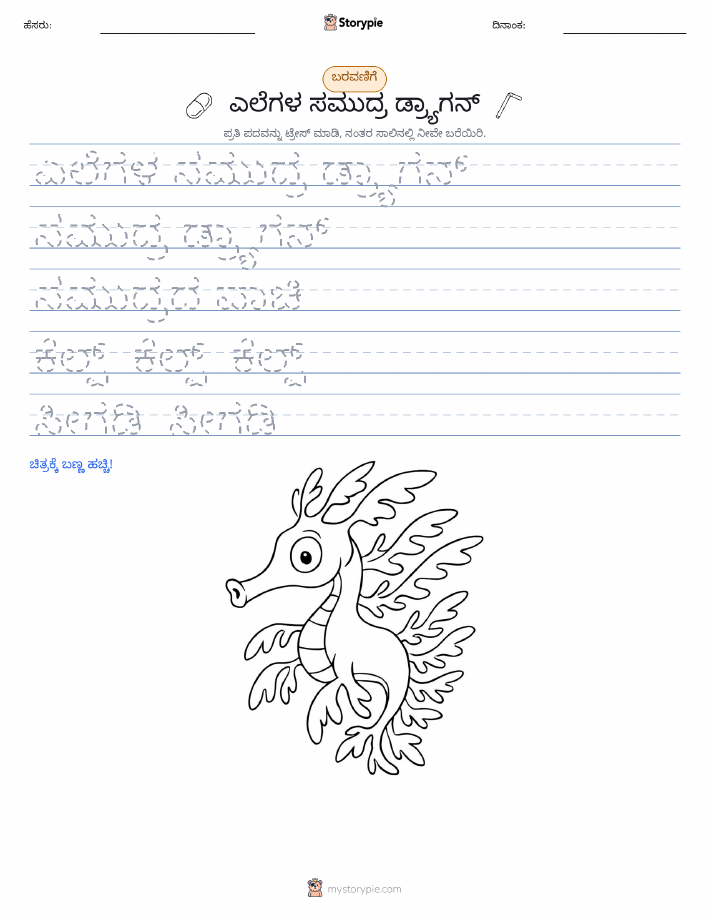 ಹೆಸರು:
Storypie
ದಿನಾಂಕ:
ಬರವಣಿಗೆ
ಎಲೆಗಳ ಸಮುದ್ರ ಡ್ರ್ಯಾಗನ್
ಪ್ರತಿ ಪದವನ್ನು ಟ್ರೇಸ್ ಮಾಡಿ, ನಂತರ ಸಾಲಿನಲ್ಲಿ ನೀವೇ ಬರೆಯಿರಿ.
ಎಲೆಗಳ ಸಮುದ್ರ ಡ್ರ್ಯಾಗನ್
ಸಮುದ್ರ ಡ್ರ್ಯಾಗನ್
ಸಮುದ್ರದ ಪಾಚಿ
ಕೆಲ್ಪ್ ಕೆಲ್ಪ್ ಕೆಲ್ಪ್
ಸೀಗಡಿ ಸೀಗಡಿ
ಚಿತ್ರಕ್ಕೆ ಬಣ್ಣ ಹಚ್ಚಿ!
mystorypie.com